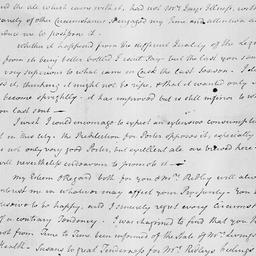 and the ale which came with it, had not Mrs Lacy's Illness, with
variety of other Circumstances engaged my Time and Attention and
me to postpone it.
Whether it happened from the different Quality of the
from its being better bottled I can't say - but the last you sent
very superior to what came in Cask the last Season. I
it, thinking it might not be ripe, & that it wanted only
become sprightly - it has improved but is still inferior to
last sent -
I wish I could encourage to expect an extensive Consumption
in this city. the Predilection for Porter opposes it, especially
not only very good Porter, but excellent ale are brewed here;
will nevertheless endeavour to promote it -
My Esteem & Regard both for you & Mrs Ridley will always
interest me in whatever may affect your Prosperity - You
deserve to be happy, and I sincerely regret every Circumstance
of a contrary Tendency. I was chagrined to find that you had
not from Time to Time been informed of the State of Mrs
Health - Susan's great Tenderness for Mrs Ridley's feelings